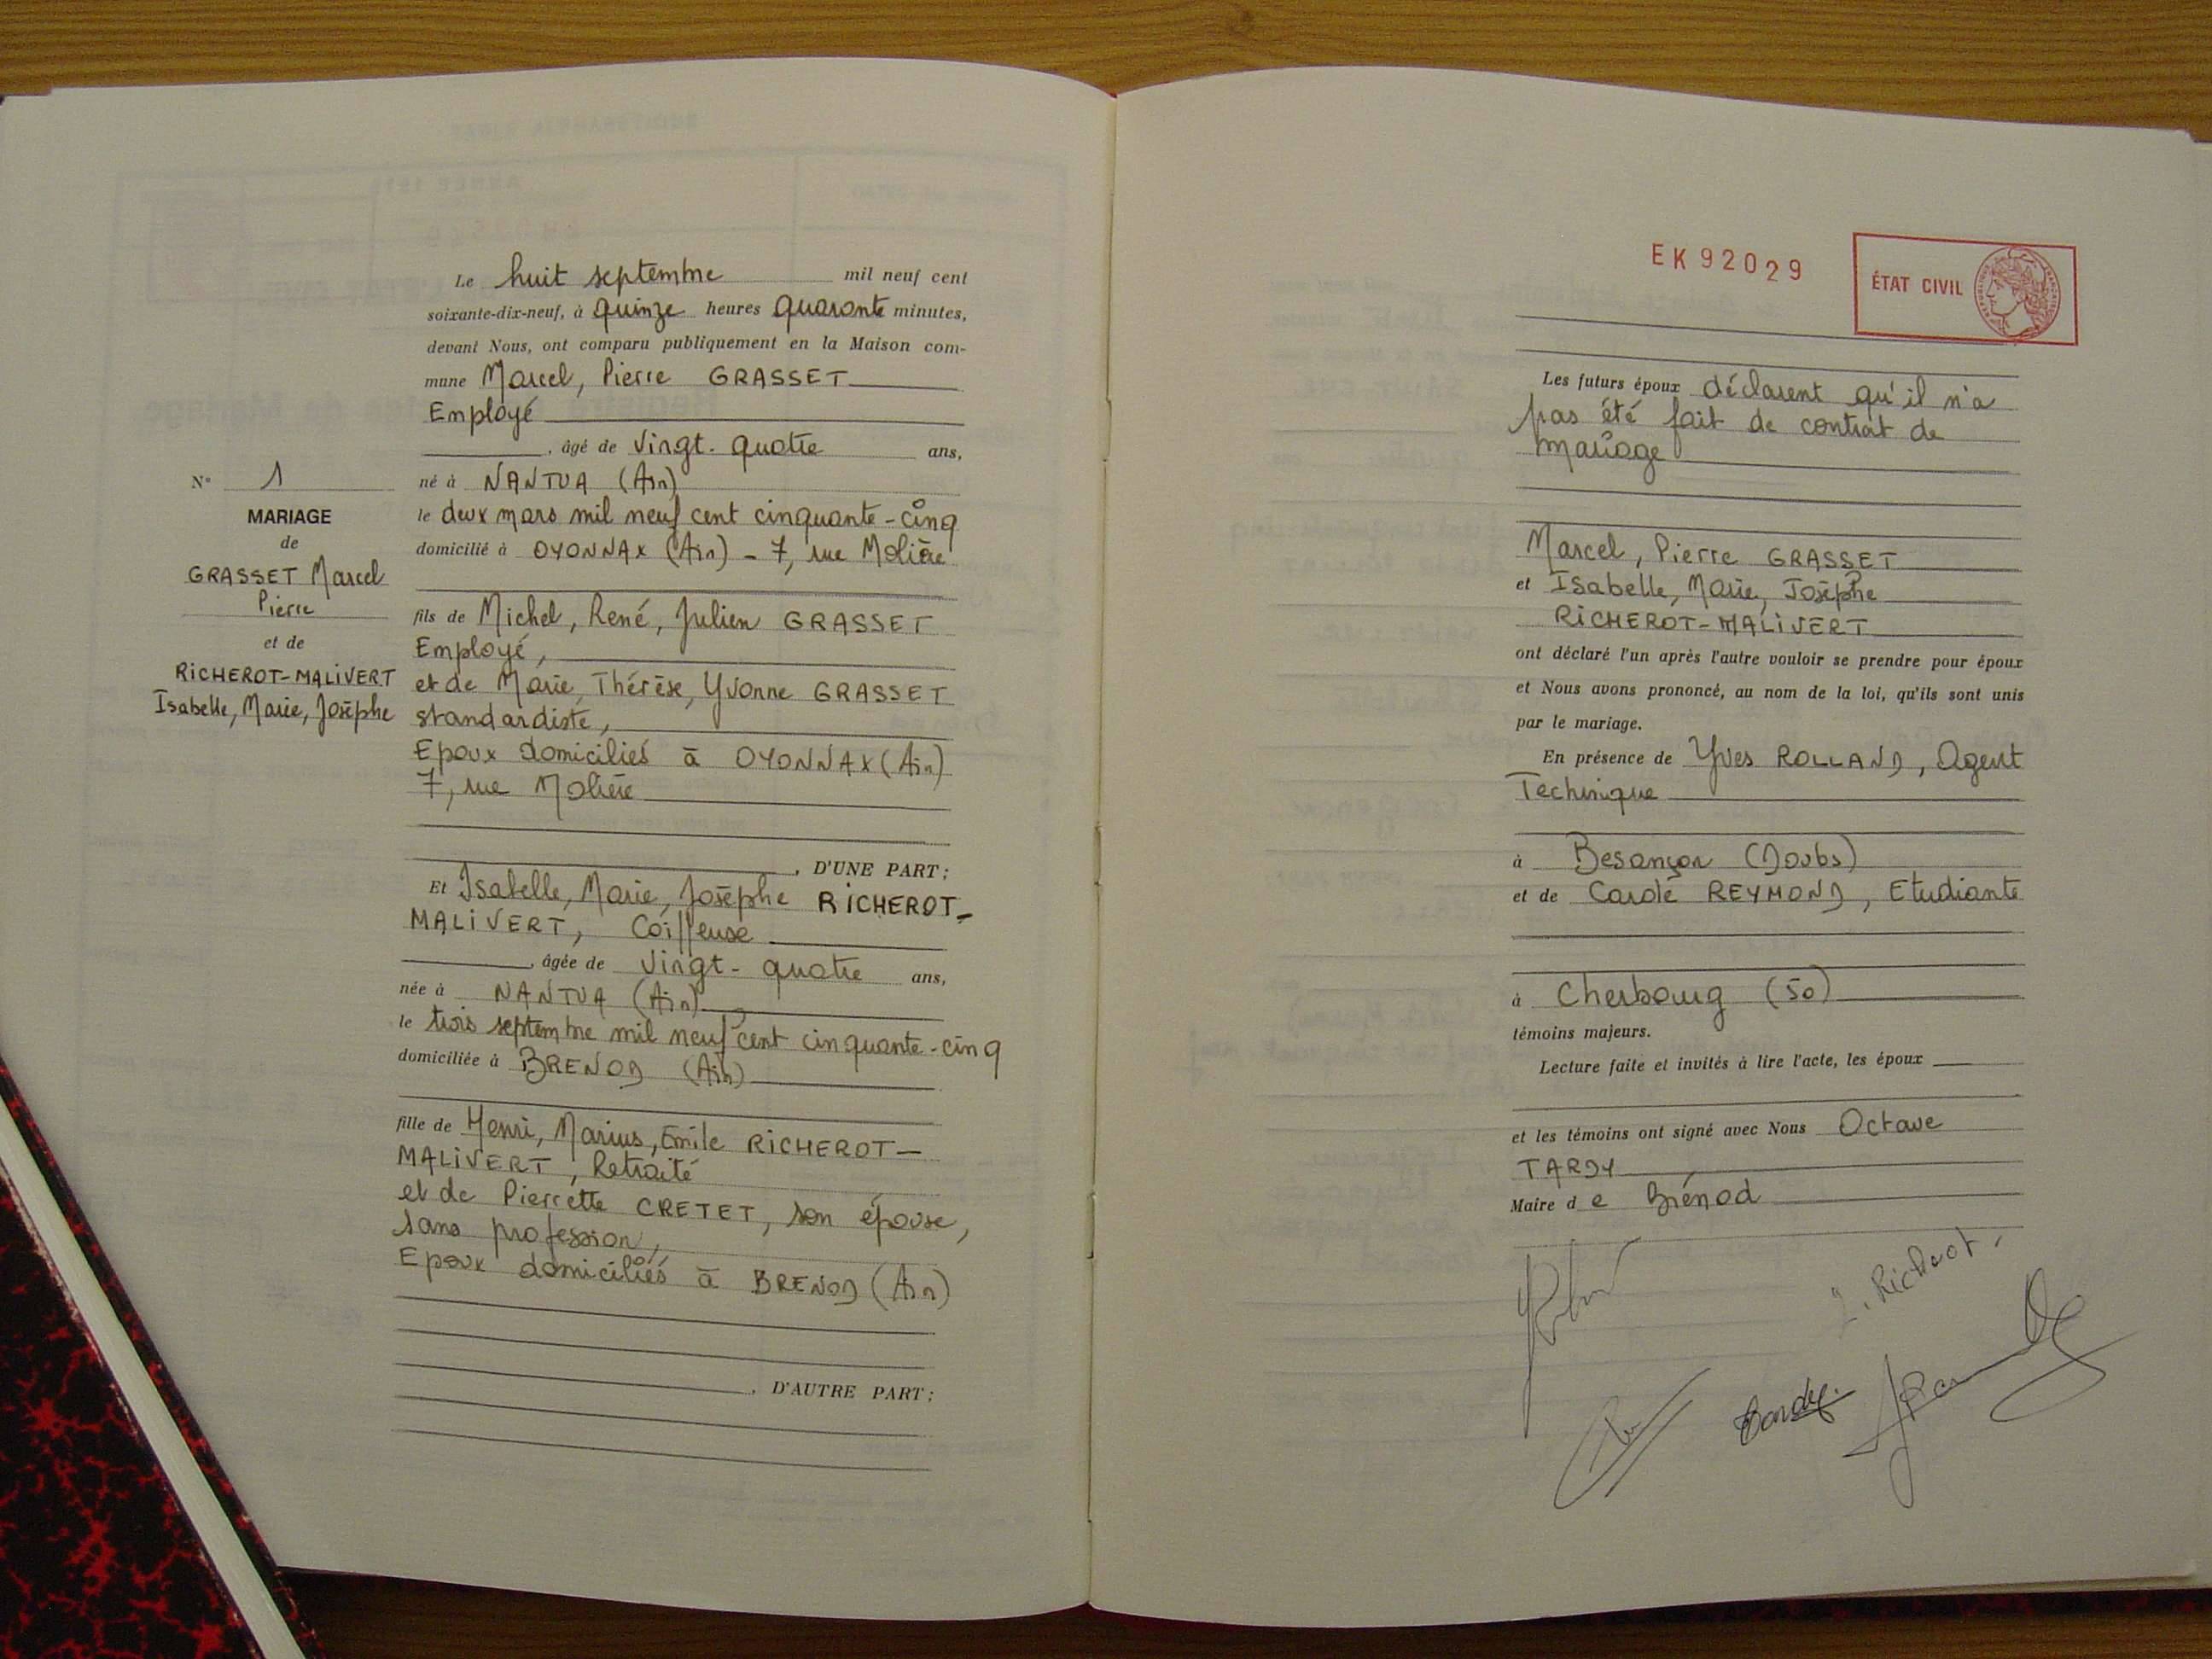 N° 1
MARIAGE
de
GRASSET Marcel
Pierre
et de
RICHEROT-MALIVERT
Isabelle, Marie, Josèphe
Le huit septembre mil neuf cent
soixante-dix-neuf, à quinze heures quaronte minutes,
devant Nous, ont comparu publiquement en la Maison com-
mune Marcel, Pierre GRASSET
Employé
, âgé de vingt-quatre ans,
né à NANTUA (Ain)
le deux mars mil neuf cent cinquante-cinq
domicilié à OYONNAX (Ain) - 7, rue Molière
fils de Michel, René, Julien GRASSET
Employé,
et de Marie, Thérèse, Yvonne GRASSET
standardiste,
Epoux domiciliés à OYONNAX (Ain)
7, rue Molière
, D'UNE PART;
Et Isabelle, Marie, Josèphe RICHEROT-
MALIVERT, Coiffeuse
, âgée de vingt-quatre ans,
née à NANTUA (Ain)
le trois septembre mil neuf cent cinquante-cinq
domiciliée à BRENOD (Ain)
fille de Henri, Marius, Emile RICHEROT-
MALIVERT, Retraité
et de Pierrette CRETET, son épouse,
sans profession,
Epoux domiciliés à BRENOD (Ain)
, D'AUTRE PART;
EK92029
ÉTAT CIVIL
Les futurs époux déclarent qu'il n'a
pas été fait de contrat de
mariage
Marcel, Pierre GRASSET
et Isabelle, Marie, Josèphe
RICHEROT-MALIVERT
ont déclaré l'un après l'autre vouloir se prendre pour époux
et Nous avons prononcé, au nom de la loi, qu'ils sont unis
par le mariage.
En présence de Yves ROLLAND, Agent
Technique
à Besançon (Doubs)
et de Carole REYMOND, Etudiante
à Cherbourg (50)
témoins majeurs.
Lecture faite et invités à lire l'acte, les époux
et les témoins ont signé avec Nous Octave
TARDY
Maire de Brénod
I. Richerot
Tardy